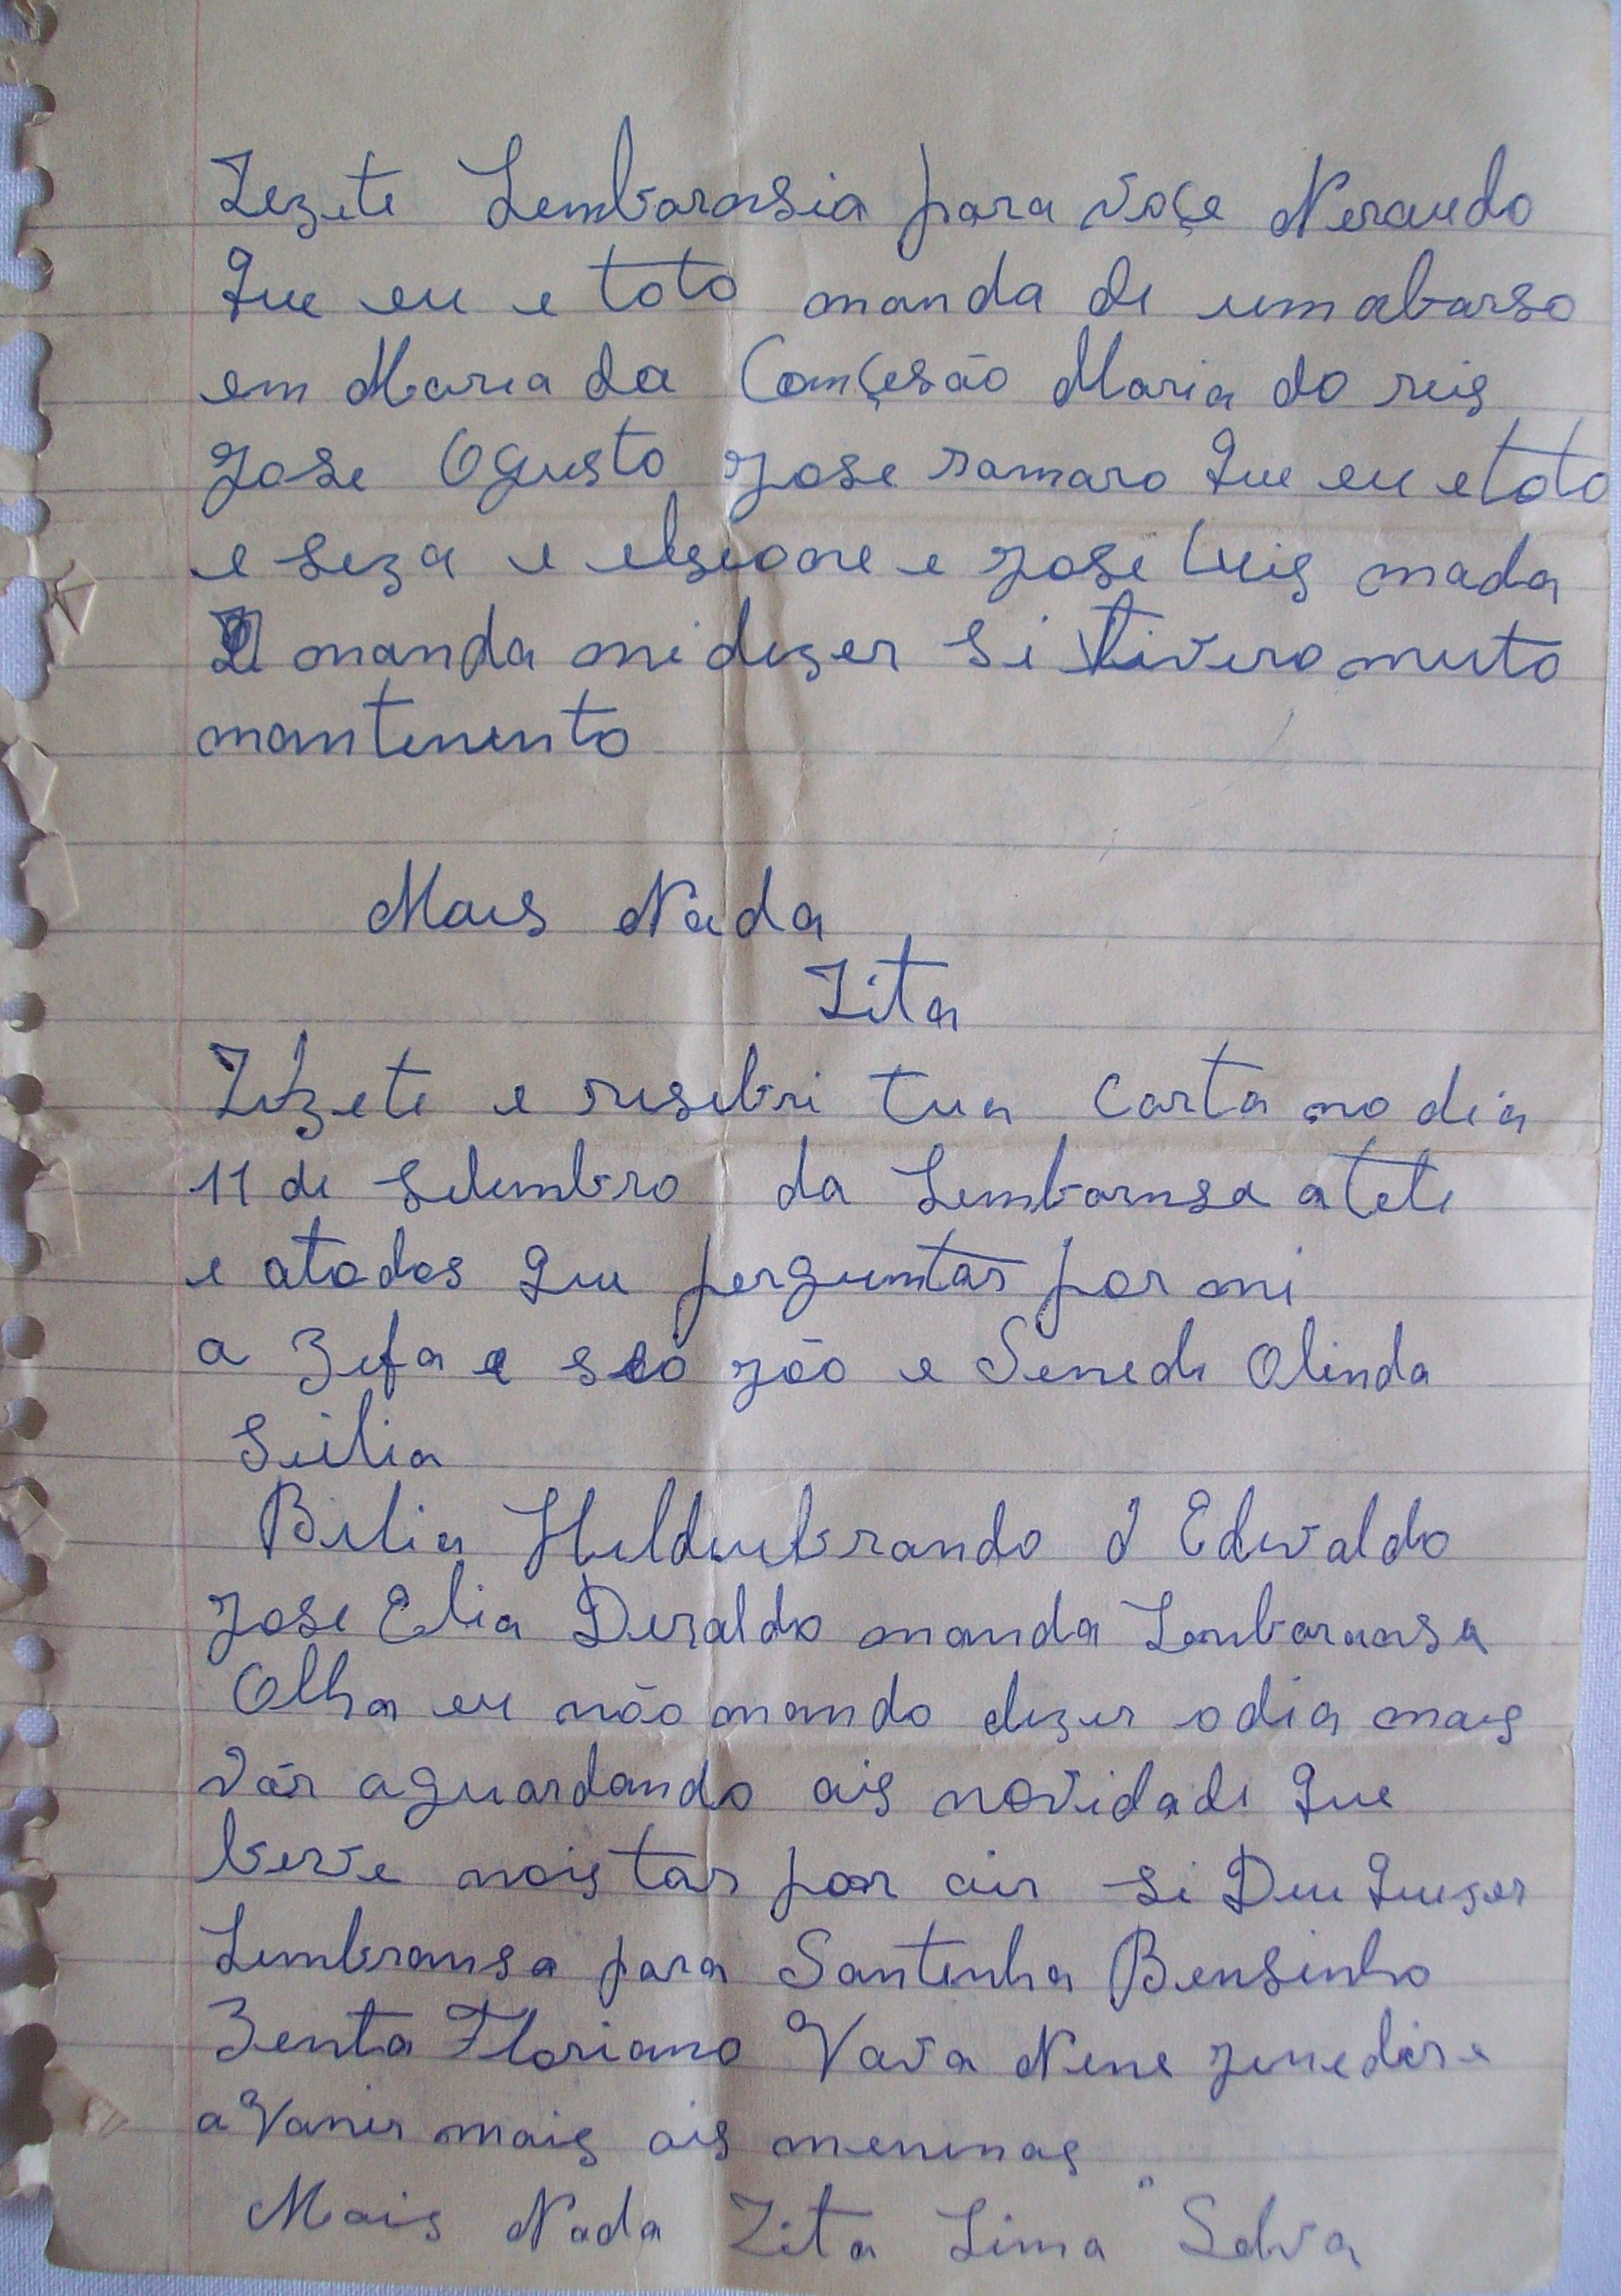 Zezete Lembaransia para voçe Neraudo
Que eu e toto manda di um abarso
em Maria da Comçesão Maria do reis
Jose Ogusto Jose ramaro Que eu e toto
e seza e elseone e jose luis mada
manda mi dizer si tivero muito
mantinento
Mais Nada
Zita
Zezete e resebri tua carta no dia
11 di setembro da Lembaransa a tete
e atodos Que perguntar por mi
a Zefa e seo jão e Senedi Olinda
Seilia
Bilia Hildeubrando i Edivaldo
Jose Elia Deraldo manda Lembaransa
Olha eu não mando dizer o dia mais
vár aguardando ais novidadi Que
berve nois tar por air si Deu Quizer
Lembransa para Santinha Bensinho
Zenta Floriano Vava Nene zenedir e
a Vanir mais ais meninas
Mais Nada Zita Lima Selva